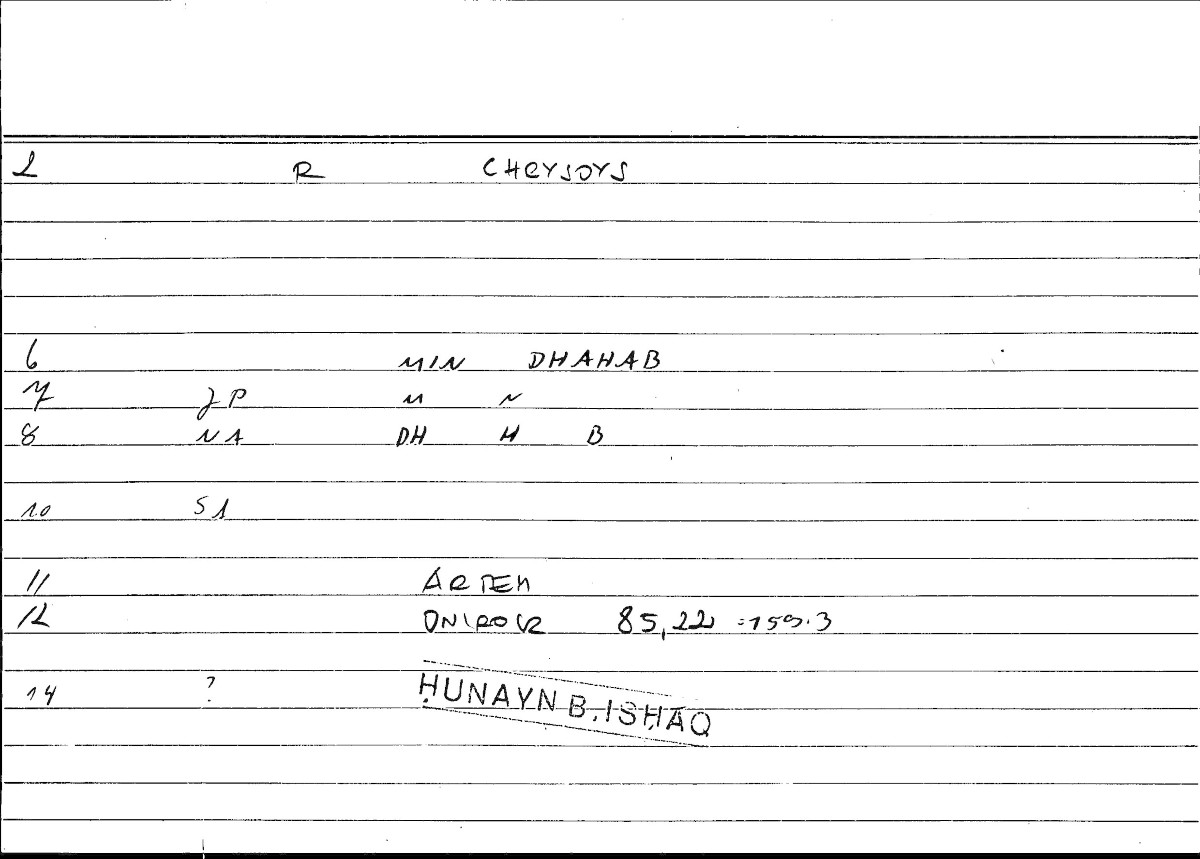 1 R CHRYSOYS
6 MIN DHAHAB
7 JP M N
8 NA DH H B
10 51
11 ARTEM
12 ONIROCR 85,22 =159.3
14 ? ḤUNAYN B. ISḤĀQ